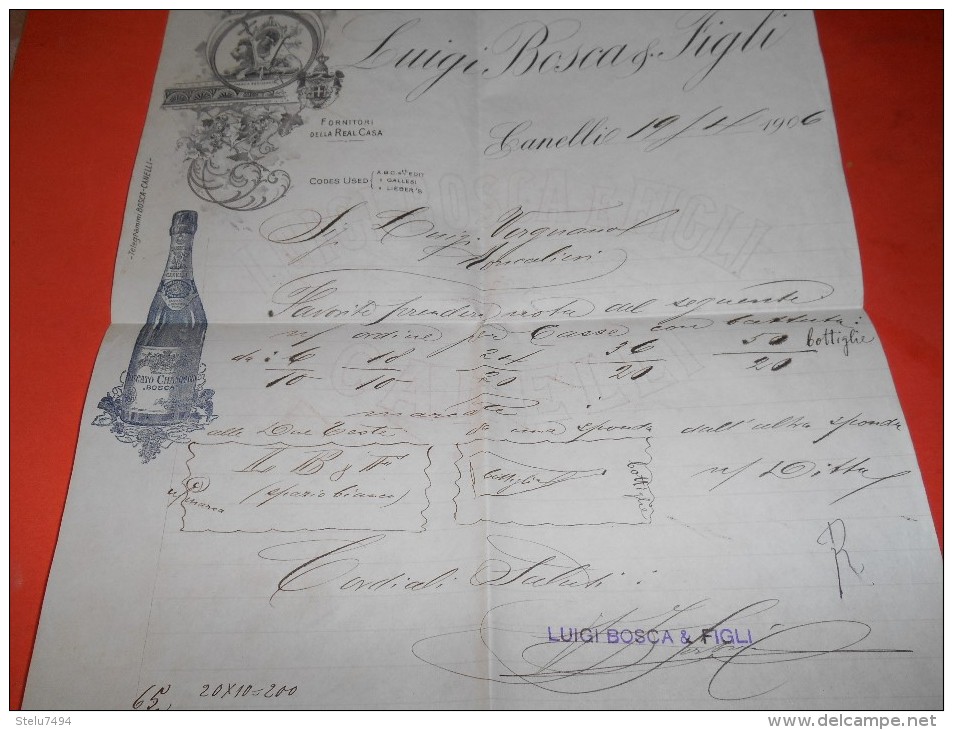 Luigi Bosca & Figli
Canelli 19/1/1906
FORNITORI
DELLA REAL CASA
CODES USED
A B C 4TH EDIT
" GALLESI
" LIEBER'S
Telegrammi BOSCA-CANELLI
BOSCA & FIGLI
CANELLI
Sig. Luigi Vergnano
Moncalieri
Favorite prendere nota del seguente
n/ ordine per Casse con battuta:
da: 6 18 24 36 50 bottiglie
10 10 20 20 20
marcate:
alle Due Teste da una sponda dall'altra sponda
L B & F
(spazio bianco)
n/ marca
bottiglie
bottiglie
n/ Ditta
MOSCATO CHAMPAGNE
BOSCA
R
Cordiali Saluti:
LUIGI BOSCA & FIGLI
65
20X10=200
Stelu7494
www.delcampe.net